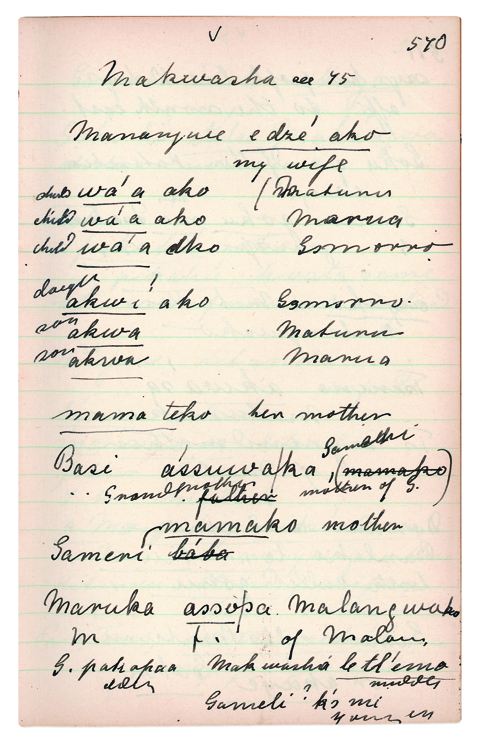 570
Makwasha aee 45
Mananguie edzé ako
my wife
child wá'a ako (Maturu
child wá'a ako Marua
child wá'a ako Gomorro
daught akwi' ako Gomorro.
son akwa Maturu
son akwa Marua
mama teko her mother
Gamethi
Basi ássuwa/ka, (mamako)
Grandmother father mother of G.
mamako mother
Gameri bába
Maruka assopa Malangwako
m f. of Malan,
G. pakapaa Makwasha letl'emo
middle
Gameli ? k's mi
younger